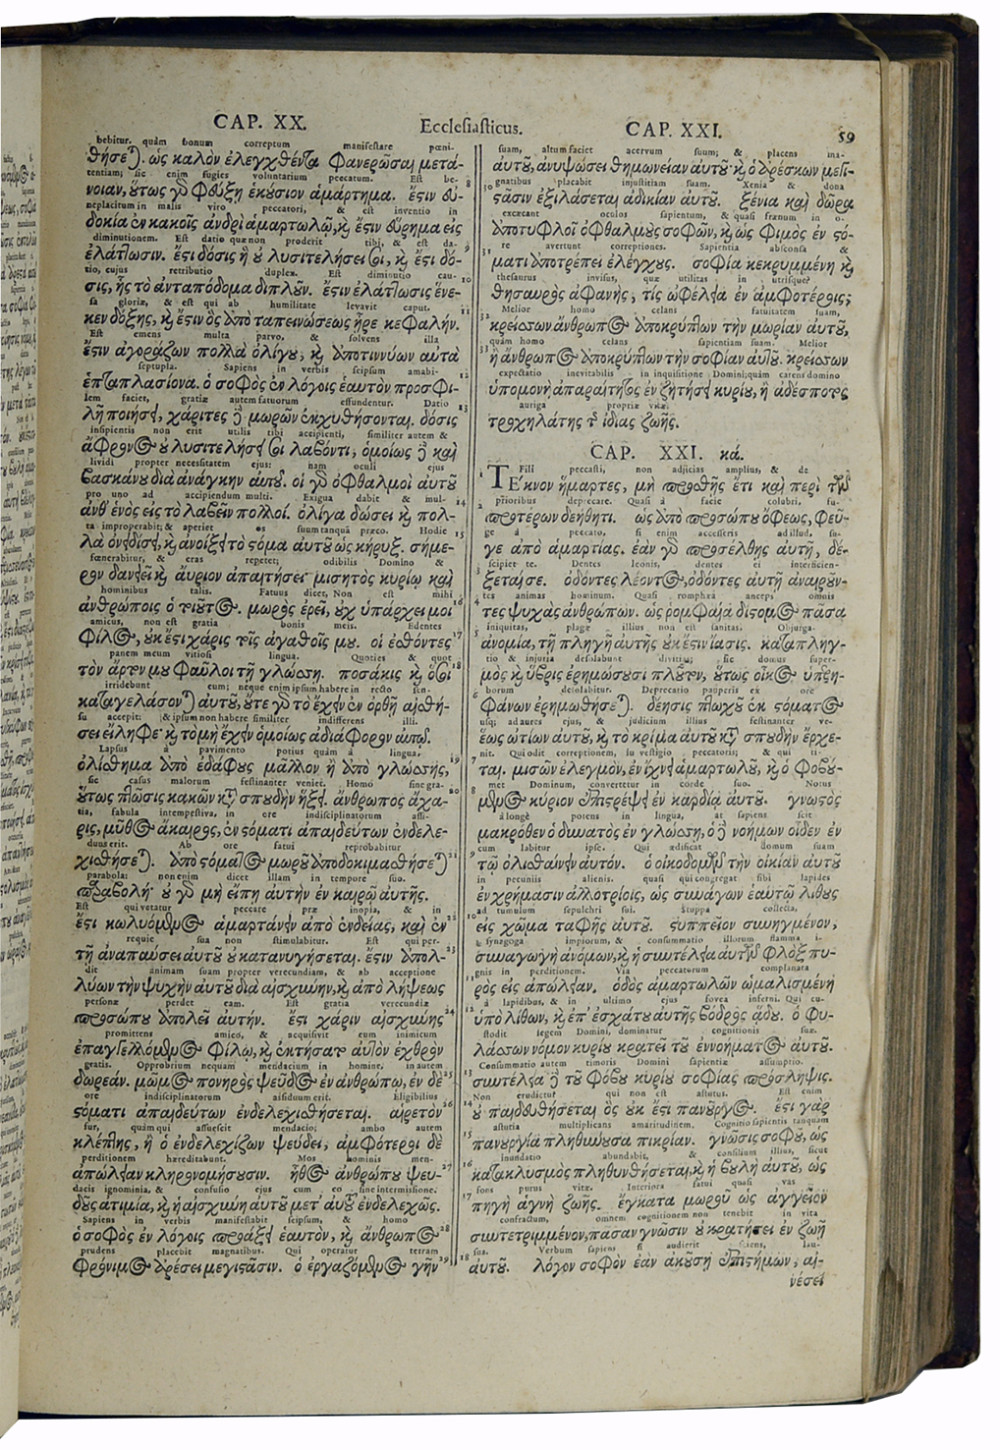 CAP. XX.
Ecclesiasticus.
CAP. XXI.
59
bebitur. quàm bonum correptum manifestare pœni-
θήσεται. ὡς καλὸν ἐλεγχθέντα φανερῶσαι μετά-
tentiam; sic enim fugies voluntarium peccatum. Est be-
νοιαν, οὕτως γὰρ φεύξῃ ἑκούσιον ἁμάρτημα. ἔστιν εὐ- 8
neplacitum in malis viro peccatori, & est inventio in
δοκία ἐν κακοῖς ἀνδρὶ ἁμαρτωλῷ, ϗ ἔστιν εὕρημα εἰς
diminutionem. Est datio quæ non proderit tibi, & est da- 9
ἐλάττωσιν. ἔστι δόσις ἣ οὐ λυσιτελήσει σοι, ϗ ἔστι δό-
tio, cujus retributio duplex. Est diminutio cau- 10
σις, ἧς τὸ ἀνταπόδομα διπλοῦν. ἔστιν ἐλάττωσις ἕνε-
sa gloriæ, & est qui ab humilitate levavit caput. 11
κεν δόξης, ϗ ἔστιν ὃς ἀπὸ ταπεινώσεως ἦρε κεφαλήν.
Est emens multa parvo, & solvens illa
ἔστιν ἀγοράζων πολλὰ ὀλίγου, ϗ ἀποτιννύων αὐτὰ
septupla. Sapiens in verbis seipsum amabi- 12
ἑπταπλασίονα. ὁ σοφὸς ἐν λόγοις ἑαυτὸν προσφι-
lem faciet, gratiæ autem fatuorum effundentur. Datio 13
λῆ ποιήσει, χάριτες δὲ μωρῶν ἐκχυθήσονται. δόσις
insipientis non erit utilis tibi accipienti, similiter autem &
ἄφρονος οὐ λυσιτελήσει σοι λαβόντι, ὁμοίως δὲ καὶ
lividi propter necessitatem ejus: nam oculi ejus
βασκάνου διὰ ἀνάγκην αὐτοῦ. οἱ γὰρ ὀφθαλμοὶ αὐτοῦ
pro uno ad accipiendum multi. Exigua dabit & mul- 14
ἀνθ' ἑνὸς εἰς τὸ λαβεῖν πολλοί. ὀλίγα δώσει ϗ πολ-
ta improperabit; & aperiet os suum tanquã præco. Hodie 15
λὰ ὀνειδίσει, ϗ ἀνοίξει τὸ στόμα αὐτοῦ ὡς κήρυξ. σήμε-
fœnerabitur, & cras repetet; odibilis Domino &
ρον δανειεῖ ϗ αὔριον ἀπαιτήσει μισητὸς κυρίῳ καὶ
hominibus talis. Fatuus dicet, Non est mihi
ἀνθρώποις ὁ τοιοῦτος. μωρὸς ἐρεῖ, οὐχ ὑπάρχει μοι 16
amicus, non est gratia bonis meis. Edentes
φίλος, οὐκ ἔστι χάρις τοῖς ἀγαθοῖς μου. οἱ ἔσθοντες 17
panem meum vitiosi lingua. Quoties & quot
τὸν ἄρτον μου φαῦλοι τῇ γλώσσῃ. ποσάκις ϗ ὅσοι 18
irridebunt eum; neque enim ipsum habere in recto sen-
καταγελάσονται αὐτοῦ, οὔτε γὰρ τὸ ἔχειν ἐν ὀρθῇ αἰσθή-
su accepit: & ipsum non habere similiter indifferens illi.
σει εἴληφε· ϗ τὸ μὴ ἔχειν ὁμοίως ἀδιάφορον αὐτῷ.
Lapsus à pavimento potius quàm à lingua,
ὀλίσθημα ἀπὸ ἐδάφους μᾶλλον ἢ ἀπὸ γλώσσης, 19
sic casus malorum festinanter veniet. Homo sine gra-
οὕτως πτῶσις κακῶν κατὰ σπουδὴν ἥξει. ἄνθρωπος ἄχα- 20
tia, fabula intempestiva, in ore indisciplinatorum assi-
ρις, μῦθος ἄκαιρος, ἐν στόματι ἀπαιδεύτων ἐνδελε-
duus erit. Ab ore fatui reprobabitur
χισθήσεται. ἀπὸ στόματος μωροῦ ἀποδοκιμασθήσεται 21
parabola: non enim dicet illam in tempore suo.
παραβολή· οὐ γὰρ μὴ εἴπῃ αὐτὴν ἐν καιρῷ αὐτῆς.
Est qui vetatur peccare præ inopia, & in
ἔστι κωλυόμενος ἁμαρτάνειν ἀπὸ ἐνδείας, καὶ ἐν 22
requie sua non stimulabitur. Est qui per-
τῇ ἀναπαύσει αὐτοῦ οὐ κατανυγήσεται. ἔστιν ἀπολ- 23
dit animam suam propter verecundiam, & ab acceptione
λύων τὴν ψυχὴν αὐτοῦ διὰ αἰσχύνην, ϗ ἀπὸ λήψεως
personæ perdet eam. Est gratia verecundiæ
προσώπου ἀπολεῖ αὐτήν. ἔστι χάριν αἰσχύνης 24
promittens amico, & acquisivit eum inimicum
ἐπαγγελλόμενος φίλῳ, ϗ ἐκτήσατο αὐτὸν ἐχθρὸν
gratis. Opprobrium nequam mendacium in homine, in autem
δωρεάν. μῶμος πονηρὸς ψεῦδος ἐν ἀνθρώπῳ, ἐν δὲ 25
ore indisciplinatorum assiduum erit. Eligibilius
στόματι ἀπαιδεύτων ἐνδελεχισθήσεται. αἱρετὸν 26
fur, quàm qui assuescit mendacio; ambo autem
κλέπτης, ἢ ὁ ἐνδελεχίζων ψεύδει, ἀμφότεροι δὲ
perditionem hæreditabunt. Mos hominis men-
ἀπώλειαν κληρονομήσουσιν. ἦθος ἀνθρώπου ψευ- 27
dacis ignominia, & confusio ejus cum eo sine intermissione.
δοῦς ἀτιμία, ϗ ἡ αἰσχύνη αὐτοῦ μετ' αὐτοῦ ἐνδελεχῶς.
Sapiens in verbis manifestabit seipsum, & homo
ὁ σοφὸς ἐν λόγοις προάξει ἑαυτὸν, ϗ ἄνθρωπος 28
prudens placebit magnatibus. Qui operatur terram
φρόνιμος ἀρέσει μεγιστᾶσιν. ὁ ἐργαζόμενος γῆν 29
suam, altum faciet acervum suum; & placens ma-
αὐτοῦ, ἀνυψώσει θημωνείαν αὐτοῦ· ϗ ὁ ἀρέσκων μεγι-
gnatibus placabit injustitiam suam. Xenia & dona
10 στᾶσιν ἐξιλάσεται ἀδικίαν αὐτοῦ. ξένια καὶ δῶρα
excæcant oculos sapientum, & quasi frænum in o-
ἀποτυφλοῖ ὀφθαλμοὺς σοφῶν, ϗ ὡς φιμὸς ἐν στό-
re avertunt correptiones. Sapientia absconsa &
11 ματι ἀποτρέπει ἐλέγχους. σοφία κεκρυμμένη ϗ
thesaurus invisus, quæ utilitas in utrisque?
θησαυρὸς ἀφανής, τίς ὠφέλεια ἐν ἀμφοτέροις;
Melior homo celans fatuitatem suam,
32 κρείσσων ἄνθρωπος ἀποκρύπτων τὴν μωρίαν αὐτοῦ,
quàm homo celans sapientiam suam. Melior
33 ἢ ἄνθρωπος ἀποκρύπτων τὴν σοφίαν αὐτοῦ. κρείσσων
expectatio inevitabilis in inquisitione Domini; quàm carens domino
ὑπομονὴ ἀπαραίτητος ἐν ζητήσει κυρίου, ἢ ἀδέσποτος
auriga propriæ vitæ.
τροχηλάτης τῆς ἰδίας ζωῆς.
CAP. XXI. κά.
Fili peccasti, non adjicias amplius, & de
1 ΤΈκνον ἥμαρτες, μὴ προσθῇς ἔτι καὶ περὶ τῶν
prioribus deprecare. Quasi à facie colubri,
2 προτέρων δεήθητι. ὡς ἀπὸ προσώπου ὄφεως, φεῦ-
ge à peccato, si enim accesseris ad illud, su-
γε ἀπὸ ἁμαρτίας. ἐὰν γὰρ προσέλθῃς αὐτῇ, δέ-
scipiet te. Dentes leonis, dentes ei interficien-
ξεταί σε. ὀδόντες λέοντος, ὀδόντες αὐτῇ ἀναιροῦν-
tes animas hominum. Quasi romphæa anceps omnis
τες ψυχὰς ἀνθρώπων. ὡς ρομφαία δίστομος πᾶσα
iniquitas, plagæ illius non est sanitas. Objurga-
ἀνομία, τῇ πληγῇ αὐτῆς οὐκ ἔστιν ἴασις. καταπληγ-
tio & injuria desolabunt divitias; sic domus super-
μὸς ϗ ὕβρις ἐρημώσουσι πλοῦτον, οὕτως οἶκος ὑπερη-
borum desolabitur. Deprecatio pauperis ex ore
φάνων ἐρημωθήσεται. δέησις πτωχοῦ ἐκ στόματος
usq; ad aures ejus, & judicium illius festinanter ve-
ἕως ὠτίων αὐτοῦ, ϗ τὸ κρίμα αὐτοῦ κατὰ σπουδὴν ἔρχε-
nit. Qui odit correptionem, in vestigio peccatoris; & qui ti-
7 ται. μισῶν ἐλεγμὸν, ἐν ἴχνει ἁμαρτωλοῦ, ϗ ὁ φοβού-
met Dominum, convertetur in corde suo. Notus
8 μενος κύριον ἐπιστρέψει ἐν καρδίᾳ αὐτοῦ. γνωστὸς
à longè potens in lingua, at sapiens scit
μακρόθεν ὁ δυνατὸς ἐν γλώσσῃ, ὁ δὲ νοήμων οἶδεν ἐν
cum labitur ipse. Qui ædificat domum suam
9 τῷ ὀλισθαίνειν αὐτόν. ὁ οἰκοδομῶν τὴν οἰκίαν αὐτοῦ
in pecuniis alienis, quasi qui congregat sibi lapides
ἐν χρήμασιν ἀλλοτρίοις, ὡς συνάγων ἑαυτῷ λίθους
ad tumulum sepulchri sui. Stuppa collecta,
10 εἰς χῶμα ταφῆς αὐτοῦ. στυππεῖον συνηγμένον,
synagoga impiorum, & consummatio illorum flamma i-
συναγωγὴ ἀνόμων, ϗ ἡ συντέλεια αὐτῶν φλὸξ πυ-
gnis in perditionem. Via peccatorum complanata
11 ρὸς εἰς ἀπώλειαν. ὁδὸς ἁμαρτωλῶν ὡμαλισμένη
à lapidibus, & in ultimo ejus fovea inferni. Qui cu-
12 ὑπὸ λίθων, ϗ ἐπ' ἐσχάτου αὐτῆς βόθρος ᾅδου. ὁ φυ-
stodit legem Domini, dominatur cognitionis suæ.
λάσσων νόμον κυρίου κρατεῖ τοῦ ἐννοήματος αὐτοῦ.
Consummatio autem timoris Domini sapientiæ assumptio.
13 συντέλεια δὲ τοῦ φόβου κυρίου σοφίας πρόσληψις.
Non erudietur qui non est astutus. Est enim
14 οὐ παιδευθήσεται ὃς οὐκ ἔστι πανοῦργος. ἔστι γὰρ
astutia multiplicans amaritudinem. Cognitio sapientis tanquam
15 πανουργία πληθύνουσα πικρίαν. γνῶσις σοφοῦ, ὡς
inundatio abundabit, & consilium illius, sicut
16 κατακλυσμὸς πληθυνθήσεται, ϗ ἡ βουλὴ αὐτοῦ, ὡς
fons purus vitæ. Interiora fatui quasi vas
17 πηγὴ ἁγνὴ ζωῆς. ἔγκατα μωροῦ ὡς ἀγγεῖον
confractum, omnem cognitionem non tenebit in vita
συντετριμμένον, πᾶσαν γνῶσιν οὐ κρατήσει ἐν ζωῇ
sua. Verbum sapiens si audierit sciens, lau-
18 αὐτοῦ. λόγον σοφὸν ἐὰν ἀκούσῃ ἐπιστήμων, αἰ-
νέσει